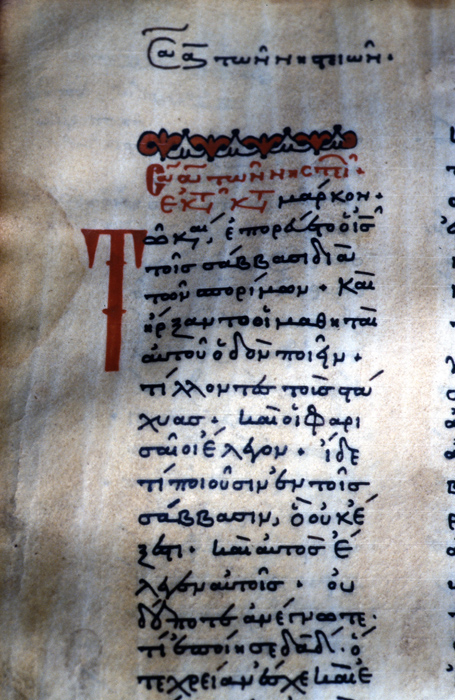 τῶν νηστειῶν·
τῶν νηστ
ἐκ τ κτ μάρκον·
Τῶ κ, ἐπορεύετο ὁ ις
τοῖς σάββασι διὰ
τῶν σπορίμων· Καὶ
ἤρξαντο οἱ μαθηταὶ
αὐτοῦ ὁδὸν ποιεῖν·
τίλλοντες τοὺς στά
χυας· καὶ οἱ φαρι
σαῖοι ἔλεγον· ἴδε
τί ποιοῦσιν ἐν τοῖς
σάββασιν, ὃ οὐκ ἔ
ξεστι· καὶ αὐτὸς ἔ
λεγεν αὐτοῖς· οὐ
δέποτε ἀνέγνωτε·
τί ἐποίησε δαδ· ὅ
τε χρείαν ἔσχε καὶ ἐ